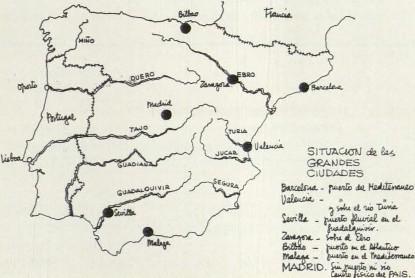 Bilbao
Francia
MIÑO
Oporto
DUERO
Zaragoza
EBRO
Barcelona
Portugal
Madrid
TAJO
TURIA
Valencia
Lisboa
GUADIANA
JUCAR
GUADALQUIVIR
SEGURA
Sevilla
Malaga
SITUACION de las
GRANDES
CIUDADES
Barcelona - puerto del Mediterraneo
Valencia - "
y sobre el rio Turia
Sevilla - puerto fluvial en el
guadalquivir.
Zaragoza - sobre el Ebro
Bilbao - puerto en el Atlantico
Malaga - puerto en el Mediterraneo
MADRID. Sin puerto ni rio
Centro fisico del PAIS